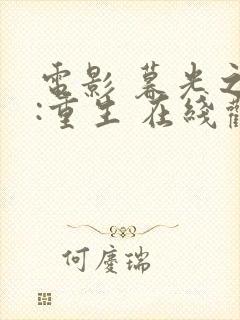 電影 暮光之
:重生 在綫
何慶瑞